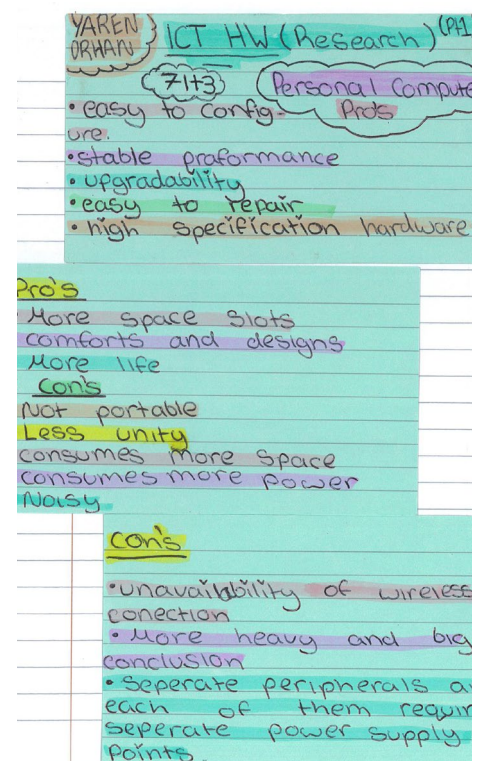 YAREN
ORHAN
ICT HW (Research) (Pt1
71+3
Personal Compute
Pro's
• easy to config-
ure.
• stable praformance
• upgradability
• easy to repair
• high specification hardware
Pro's
More space slots
comforts and designs
More life
con's
Not portable
Less unity
consumes more space
consumes more power
Noisy
con's
• unavailability of wireless
conection
• More heavy and big
conclusion
• seperate peripherals a
each of them requir
seperate power supply
points.